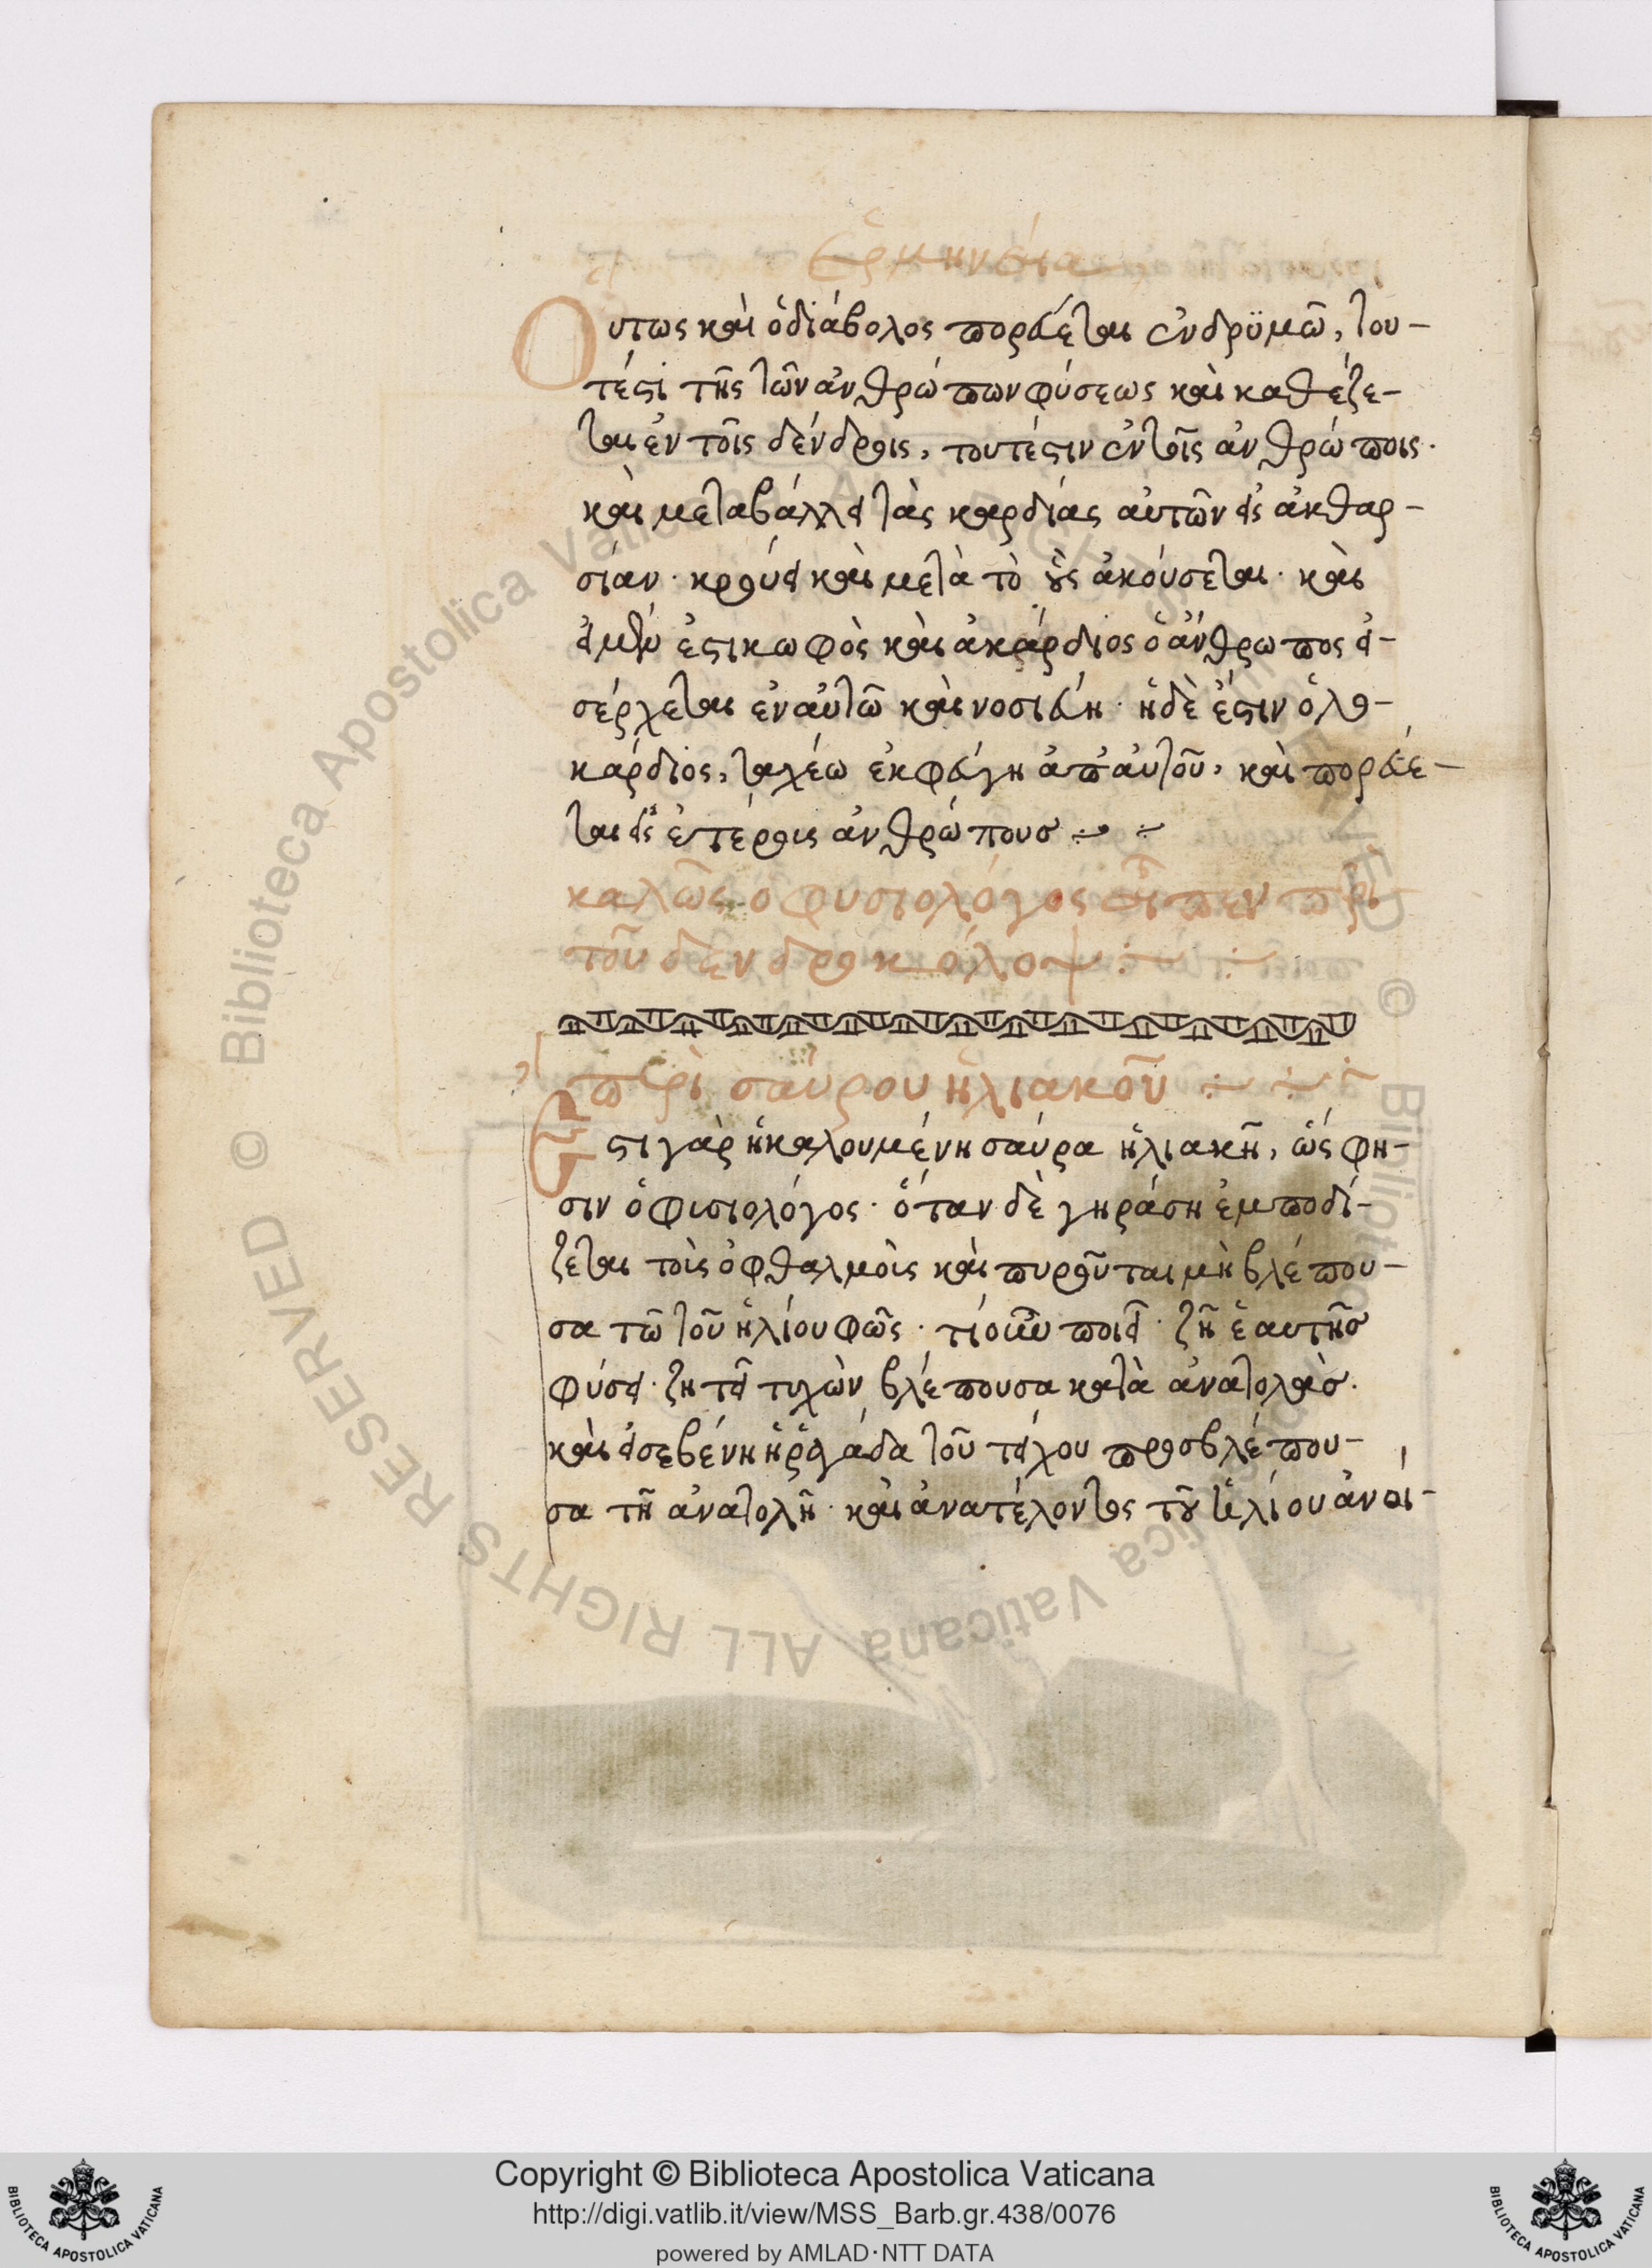 Ἑρμηνεία
Ούτως καὶ ὁ διάβολος πορεύεται ἐν δρϋμῶ, του-
τέστι τῆς τῶν ἀνθρώπων φύσεως καὶ καθέζε-
ται ἐν τοῖς δένδροις, τουτέστιν ἐν τοῖς ἀνθρώποις.
καὶ μεταβάλλει τὰς καρδίας αὐτῶν εἰς ἀκθαρ-
σίαν · κρούει καὶ μετὰ τὸ οὖς ἀκούσεται · καὶ
εἰ μὲν ἐστι κωφὸς καὶ ἀκάρδιος ὁ ἄνθρωπος εἰ-
σέρχεται ἐν αὐτῶ καὶ νοσιεύη · ἠ δὲ ἔστιν ὁλο-
κάρδιος, ταχέω ἐκφεύγη ἀπ' αὐτοῦ, καὶ πορεύε-
ται εἰς ἑτέροις ἀνθρώπους
καλῶς ὁ φυσιολόγος εἶπεν περὶ
τοῦ δενδροκόλο
περὶ σαύρου ἡλιακοῦ
Ἔστι γὰρ ἡ καλουμένη σαύρα ἡλιακῆ, ὥς φη-
σιν ὁ φισιολόγος · ὅταν δὲ γηράση ἐμποδί-
ζεται τοὶς ὀφθαλμοὶς καὶ πυροῦται μὴ βλέπου-
σα τῶ τοῦ ἡλίου φῶς · τί οὖν ποιεῖ · ζῆ ἑαυτῆς
φύσει · ζητεῖ τιχὼν βλέπουσα κατὰ ἀνατολὰς.
καὶ εἰσεβένη ραγάδα τοῦ τείχου προσβλέπου-
σα τῆ ἀνατολῆ · καὶ ἀνατέλοντος τοῦ ἡλίου ἀνοί-
Copyright © Biblioteca Apostolica Vaticana
http://digi.vatlib.it/view/MSS_Barb.gr.438/0076
powered by AMLAD·NTT DATA
BIBLIOTECA APOSTOLICA VATICANA
BIBLIOTECA APOSTOLICA VATICANA
© Biblioteca Apostolica Vaticana ALL RIGHTS RESERVED © Biblioteca Apostolica Vaticana ALL RIGHTS RESERVED